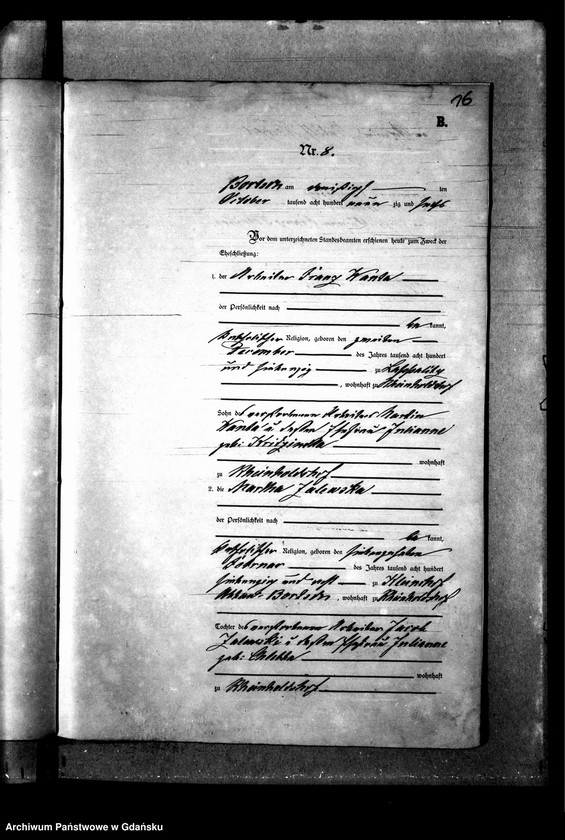 16
B.
Nr. 8.
am dreißigsten ten
October tausend acht hundert neun zig und sechs
Vor dem unterzeichneten Standesbeamten erschienen heute zum Zweck der
Eheschließung:
1. der Arbeiter Franz Wanta
der Persönlichkeit nach
be kannt,
katholischer Religion, geboren den zweiten
December des Jahres tausend acht hundert
und siebenzig zu
, wohnhaft zu Rheinholdshof
Sohn des verstorbenen Arbeiters Martin
Wanta u dessen Ehefrau Julianne
geb:
wohnhaft
zu Rheinholdshof
2. die Martha Zalewska
der Persönlichkeit nach
be kannt,
katholischer Religion, geboren den siebenzehnten
Februar des Jahres tausend acht hundert
siebenzig und acht zu Kleinhof
, wohnhaft zu Rheinholdshof
Tochter des verstorbenen Arbeiter Jacob
Zalewski u dessen Ehefrau Julianne
geb:
wohnhaft
zu Rheinholdshof
Archiwum Państwowe w Gdańsku